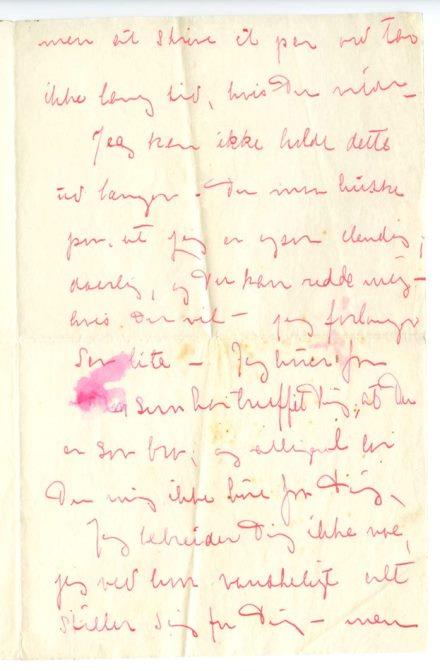 men at skrive et par ord tar
ikke lang tid, hvis Du vilde –
Jeg kan ikke holde dette
ud længer – Du maa huske
paa, at jeg er syg elendig,
daarlig, og Du kan redde mig –
hvis Du vil – jeg forlanger
saa lite – Jeg hører fra
som har truffet Dig, at Du
er saa bra; og alligevel lar
Du mig ikke høre fra Dig,
Jeg bebreider Dig ikke noe,
jeg ved hvor vanskeligt alt
stiller sig for Dig – men